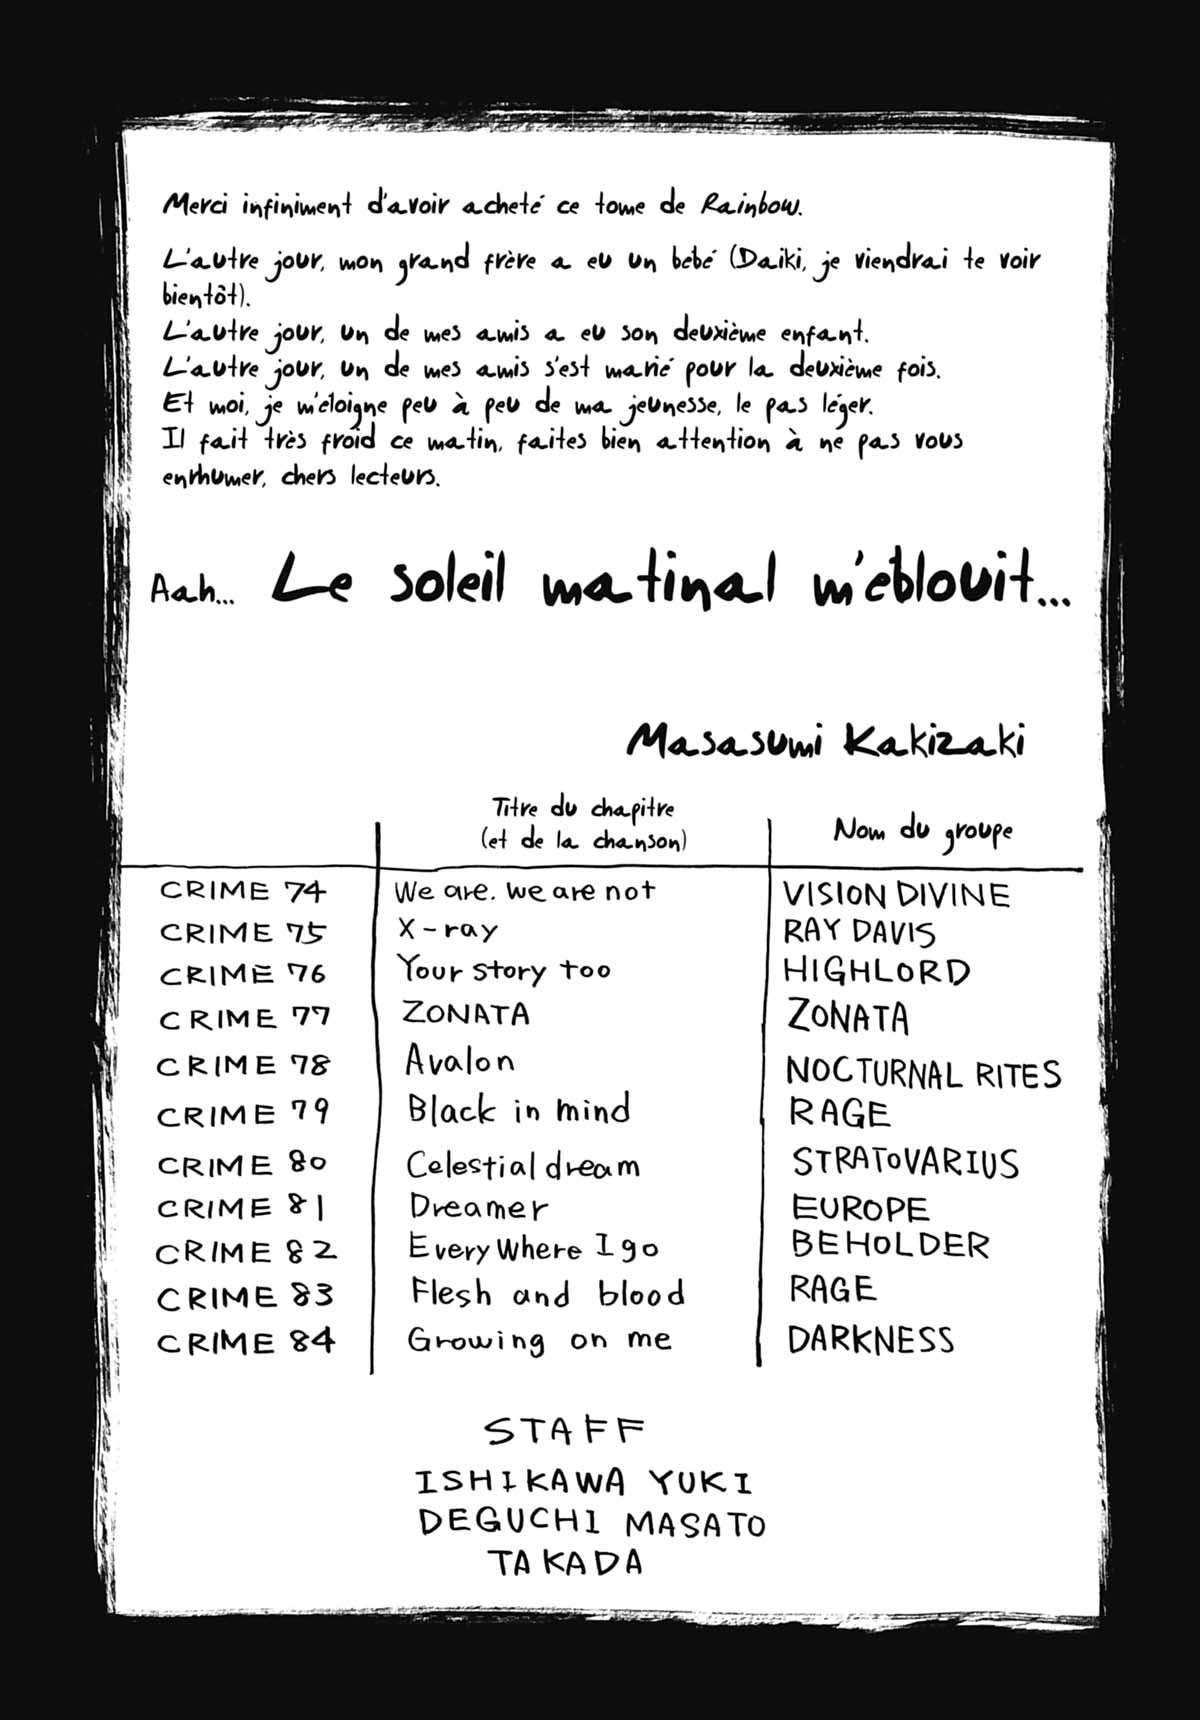 Merci infiniment d'avoir acheté ce tome de Rainbow.
L'autre jour, mon grand frère a eu un bébé (Daiki, je viendrai te voir
bientôt).
L'autre jour, un de mes amis a eu son deuxième enfant.
L'autre jour, un de mes amis s'est marié pour la deuxième fois.
Et moi, je m'éloigne peu à peu de ma jeunesse, le pas léger.
Il fait très froid ce matin, faites bien attention à ne pas vous
enrhumer, chers lecteurs.
Aah... Le soleil matinal m'éblouit...
Masasumi Kakizaki
Titre du chapitre
(et de la chanson)
Nom du groupe
CRIME 74 We are. we are not VISION DIVINE
CRIME 75 X-ray RAY DAVIS
CRIME 76 Your story too HIGHLORD
CRIME 77 ZONATA ZONATA
CRIME 78 Avalon NOCTURNAL RITES
CRIME 79 Black in mind RAGE
CRIME 80 Celestial dream STRATOVARIUS
CRIME 81 Dreamer EUROPE
CRIME 82 Every Where I go BEHOLDER
CRIME 83 Flesh and blood RAGE
CRIME 84 Growing on me DARKNESS
STAFF
ISHIKAWA YUKI
DEGUCHI MASATO
TAKADA